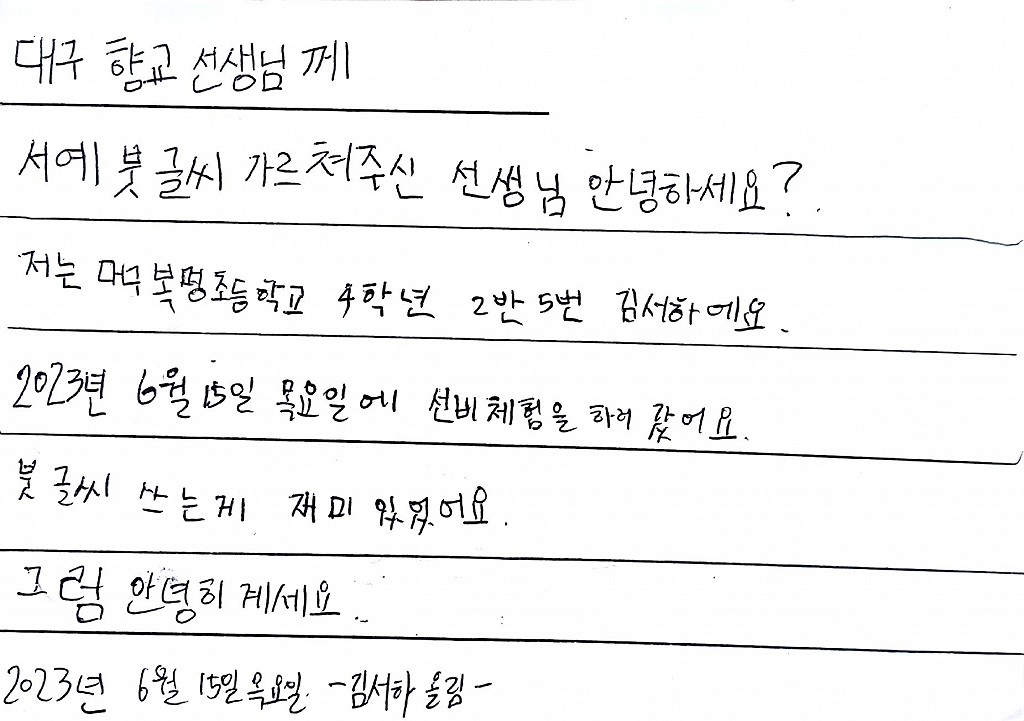 대구 향교 선생님께
서예 붓글씨 가르쳐주신 선생님 안녕하세요?
저는 대구복명초등학교 4학년 2반 5번 김서하에요.
2023년 6월 15일 목요일에 선비체험을 하러 갔어요.
붓글씨 쓰는게 재미있었어요.
그럼 안녕히 계세요.
2023년 6월 15일 목요일. -김서하 올림-